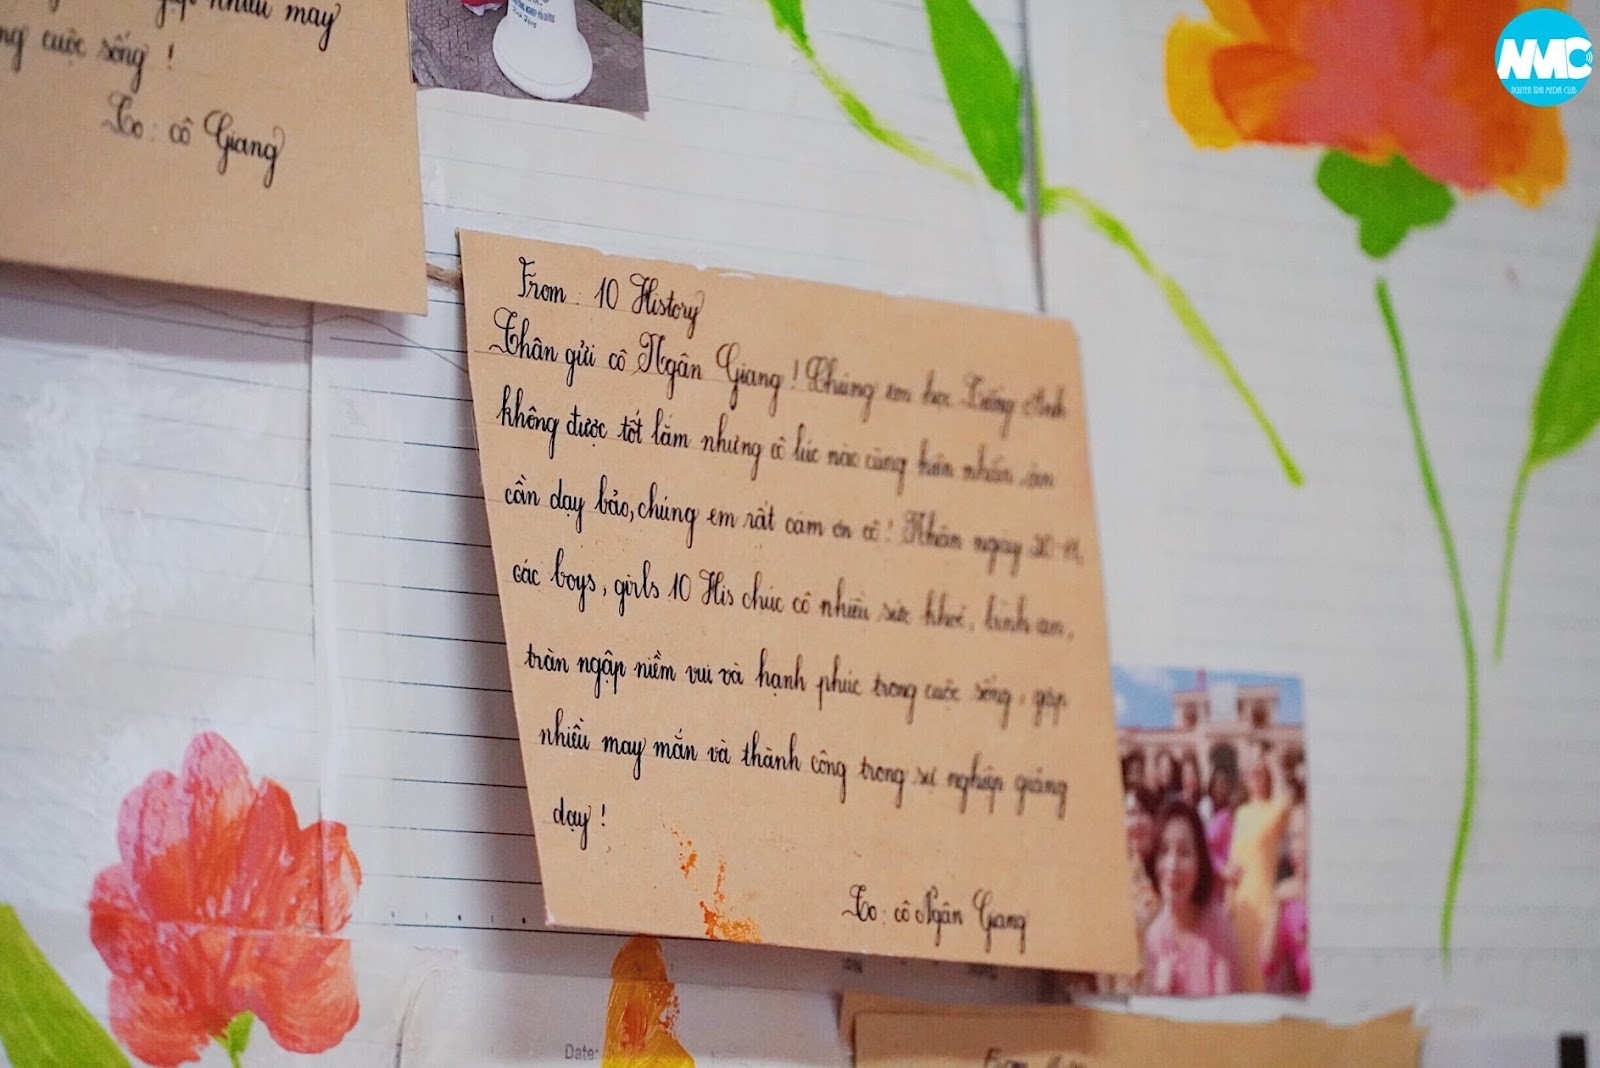 nhiều may
ng cuộc sống !
To : cô Giang
NMC
NGUYEN TRAI MEDIA CLUB
From : 10 History
Thân gửi cô Ngân Giang ! Chúng em học Tiếng Anh
không được tốt lắm nhưng cô lúc nào cũng kiên nhẫn, ân
cần dạy bảo, chúng em rất cám ơn cô ! Nhân ngày 20-11,
các boys, girls 10 His chúc cô nhiều sức khoẻ, bình an,
tràn ngập niềm vui và hạnh phúc trong cuộc sống, gặp
nhiều may mắn và thành công trong sự nghiệp giảng
dạy !
To : cô Ngân Giang
Date: